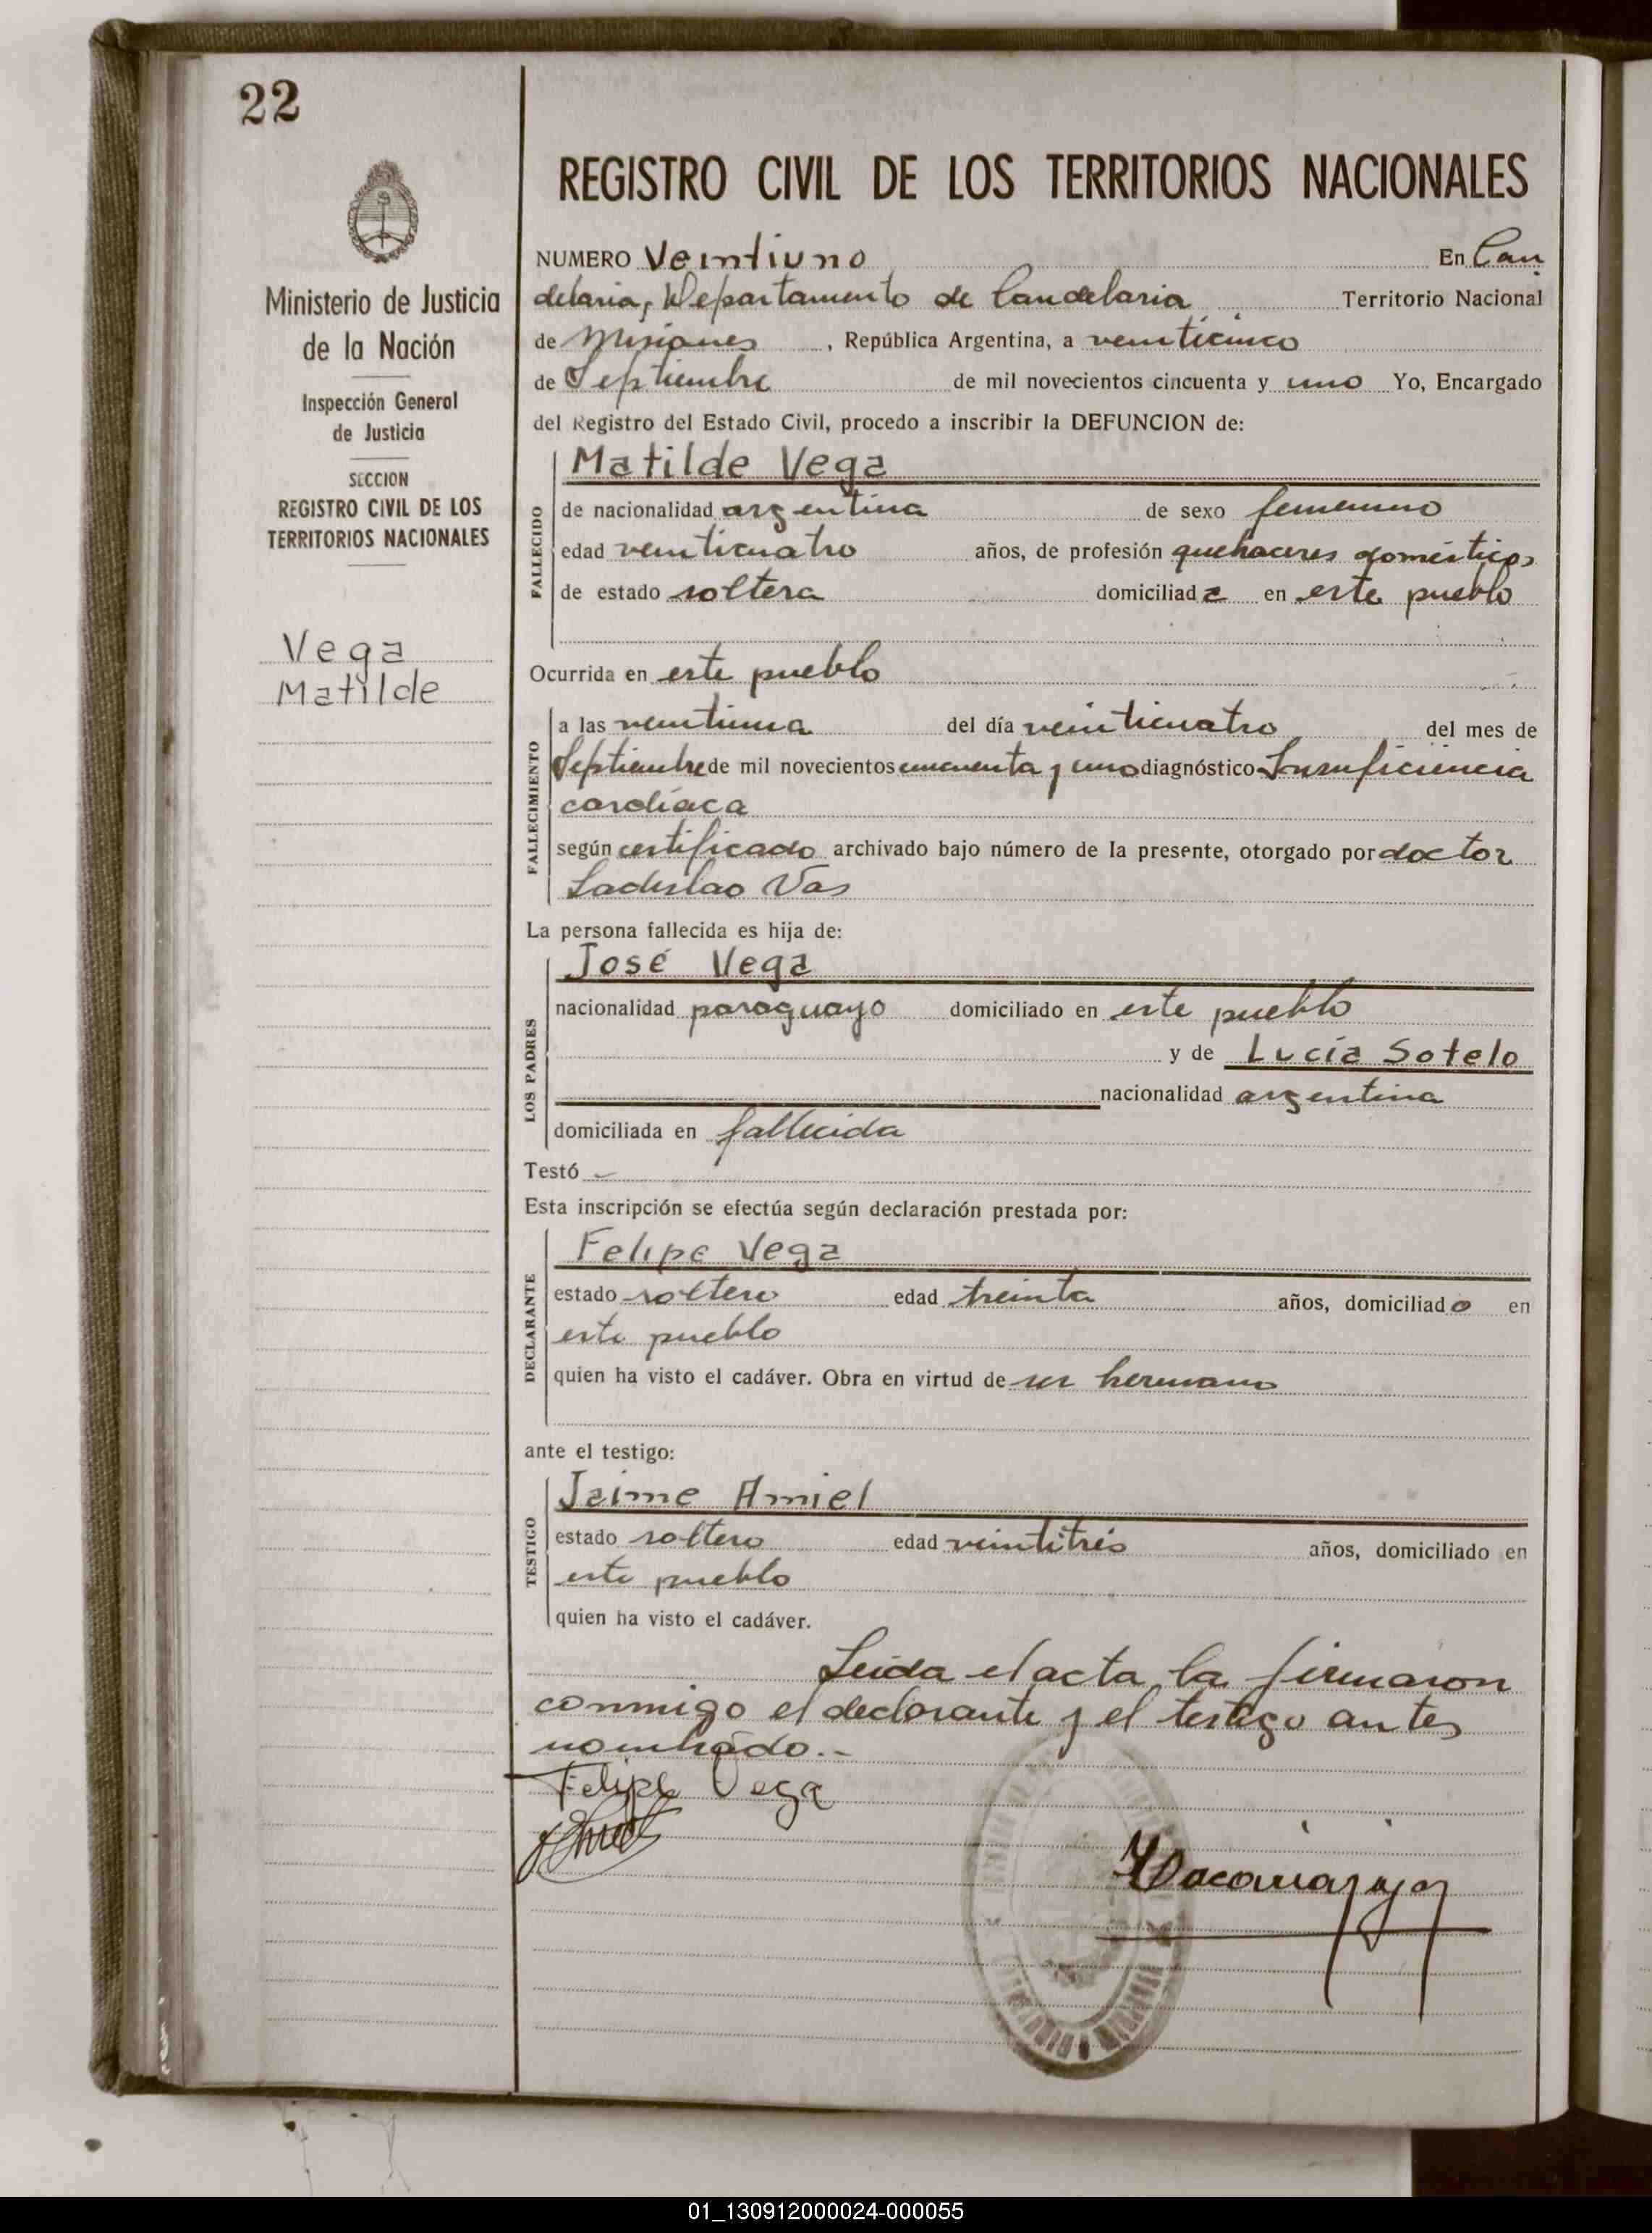 22
Ministerio de Justicia
de la Nación
Inspección General
de Justicia
SECCION
REGISTRO CIVIL DE LOS
TERRITORIOS NACIONALES
Vega
Matilde
REGISTRO CIVIL DE LOS TERRITORIOS NACIONALES
NUMERO Veintiuno En Can
delaria, Departamento de Candelaria Territorio Nacional
de Misiones , República Argentina, a veinticinco
de Septiembre de mil novecientos cincuenta y uno Yo, Encargado
del Registro del Estado Civil, procedo a inscribir la DEFUNCION de:
FALLECIDO
Matilde Vega
de nacionalidad argentina de sexo femenino
edad veinticuatro años, de profesión quehaceres domésticos
de estado soltera domiciliada en este pueblo
Ocurrida en este pueblo
FALLECIMIENTO
a las veintiuna del día veinticuatro del mes de
Septiembre de mil novecientos cincuenta y uno diagnóstico Insuficiencia
cardíaca
según certificado archivado bajo número de la presente, otorgado por doctor
Ladislao Vas
La persona fallecida es hija de:
LOS PADRES
José Vega
nacionalidad paraguayo domiciliado en este pueblo
y de Lucía Sotelo
nacionalidad argentina
domiciliada en fallecida
Testó -
Esta inscripción se efectúa según declaración prestada por:
DECLARANTE
Felipe Vega
estado soltero edad treinta años, domiciliado en
este pueblo
quien ha visto el cadáver. Obra en virtud de ser hermano
ante el testigo:
TESTIGO
Jaime Amiel
estado soltero edad veintitrés años, domiciliado en
este pueblo
quien ha visto el cadáver.
Leida el acta, la firmaron
conmigo el declarante y el testigo antes
nombrado.-
Felipe Vega
01_130912000024-000055